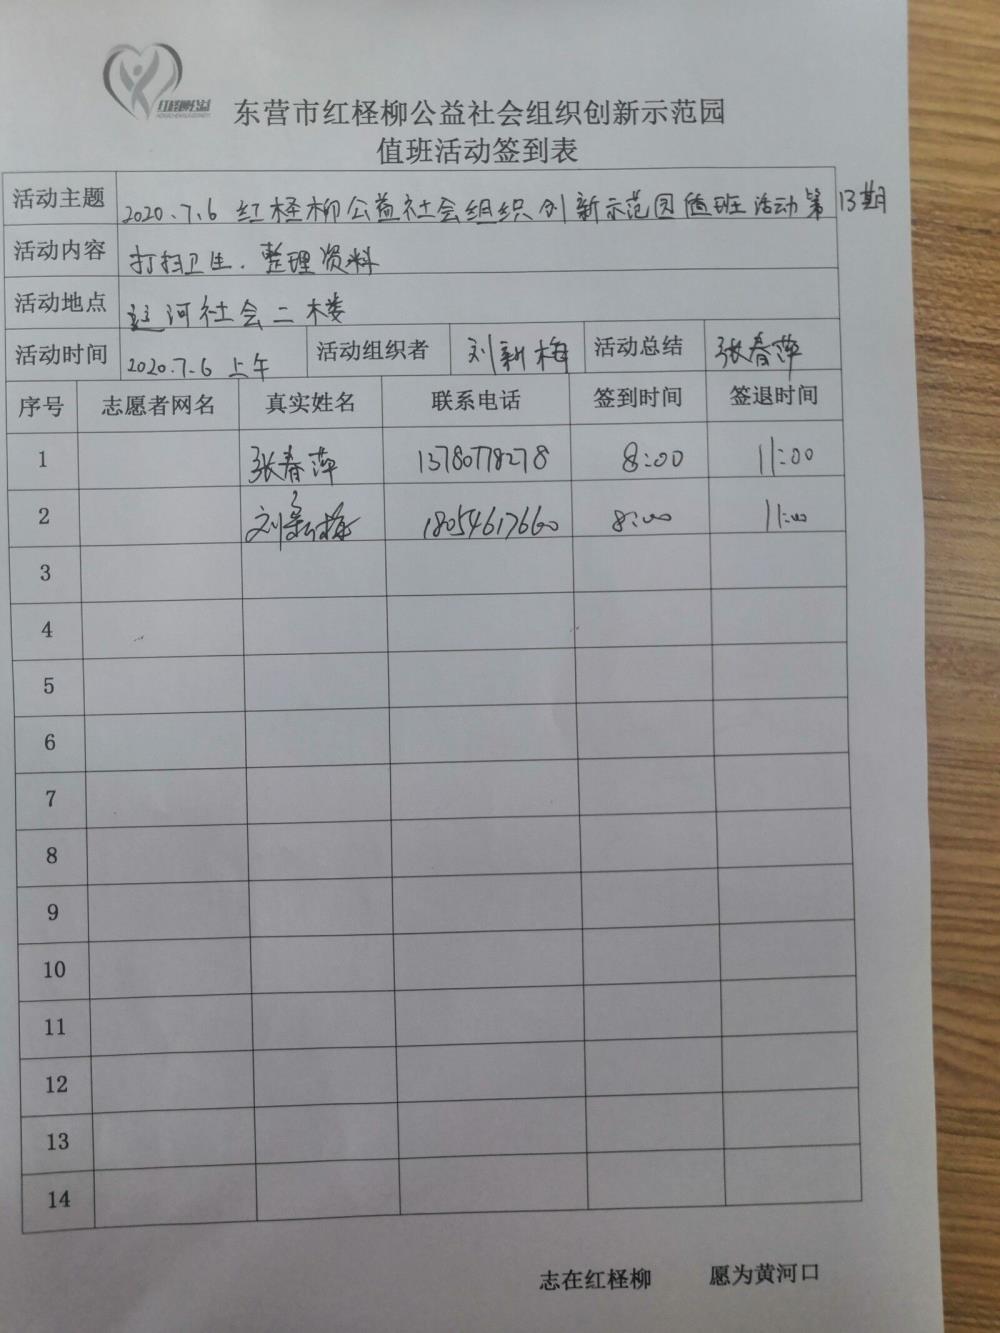 红柽柳公益
东营市红柽柳公益社会组织创新示范园
值班活动签到表
活动主题 2020.7.6 红柽柳公益社会组织创新示范园值班活动第13期
活动内容 打扫卫生.整理资料
活动地点 运河社会二楼
活动时间 2020.7.6 上午 活动组织者 刘新梅 活动总结 张春萍
序号 志愿者网名 真实姓名 联系电话 签到时间 签退时间
1 张春萍 13780778278 8:00 11:00
2 刘新梅 18054617660 8:00 11:00
3
4
5
6
7
8
9
10
11
12
13
14
志在红柽柳 愿为黄河口